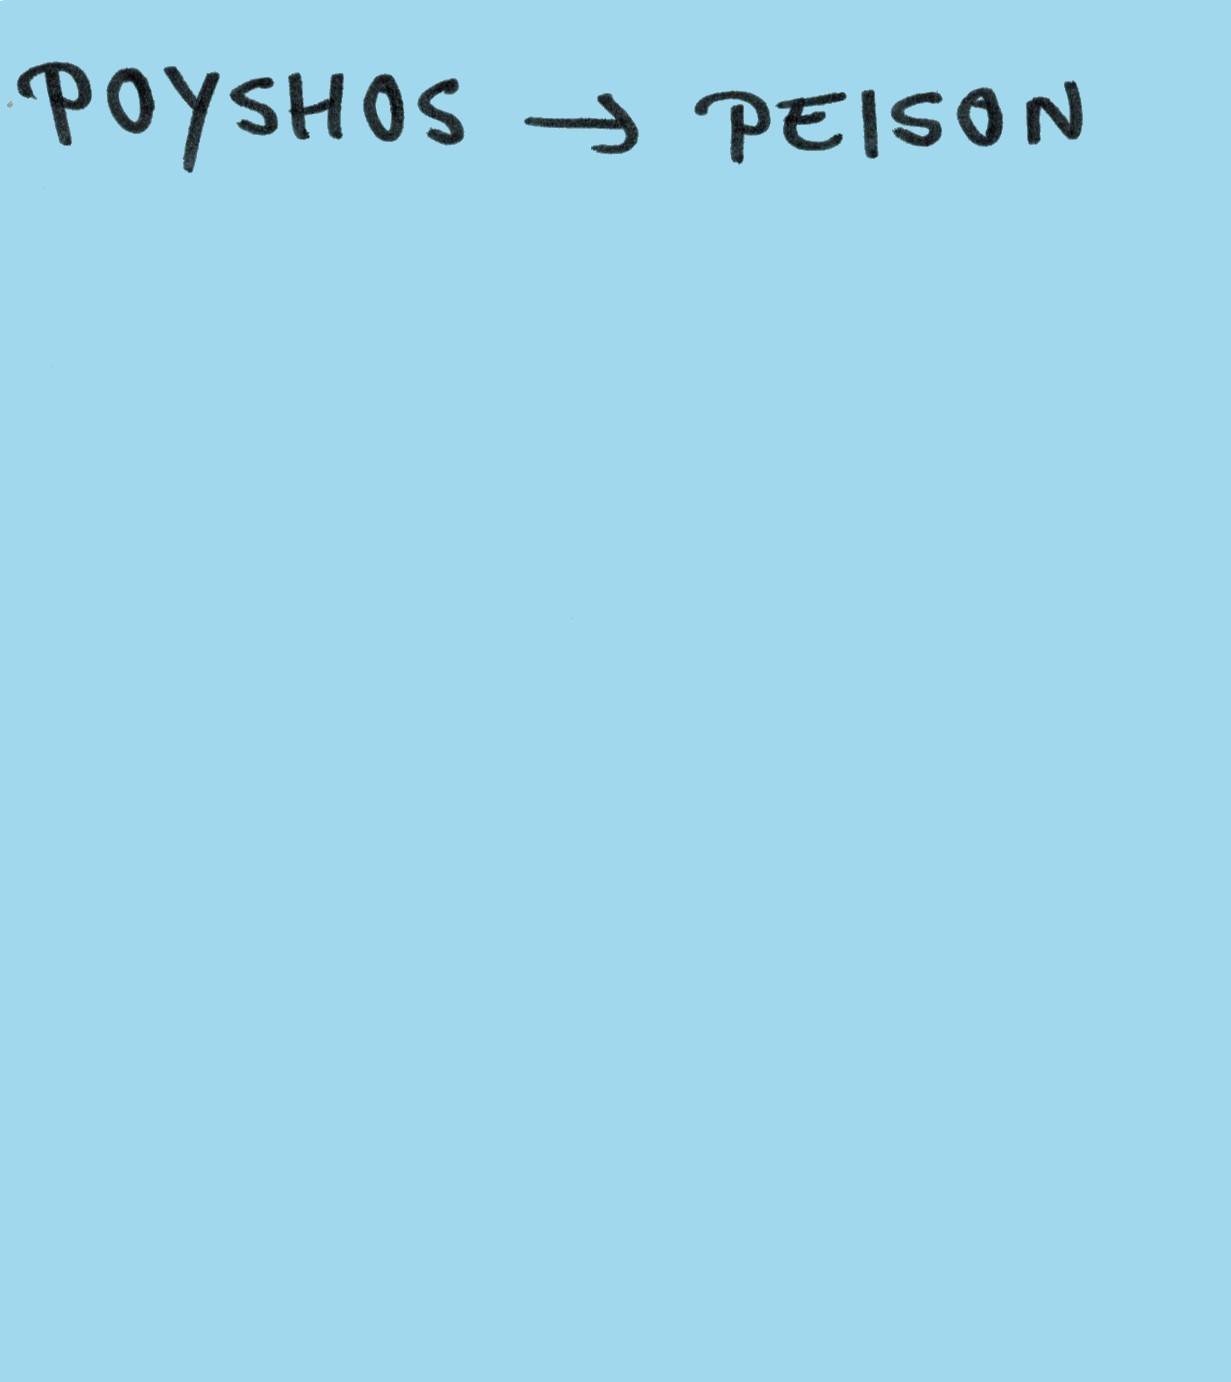 POYSHOS → PEISON